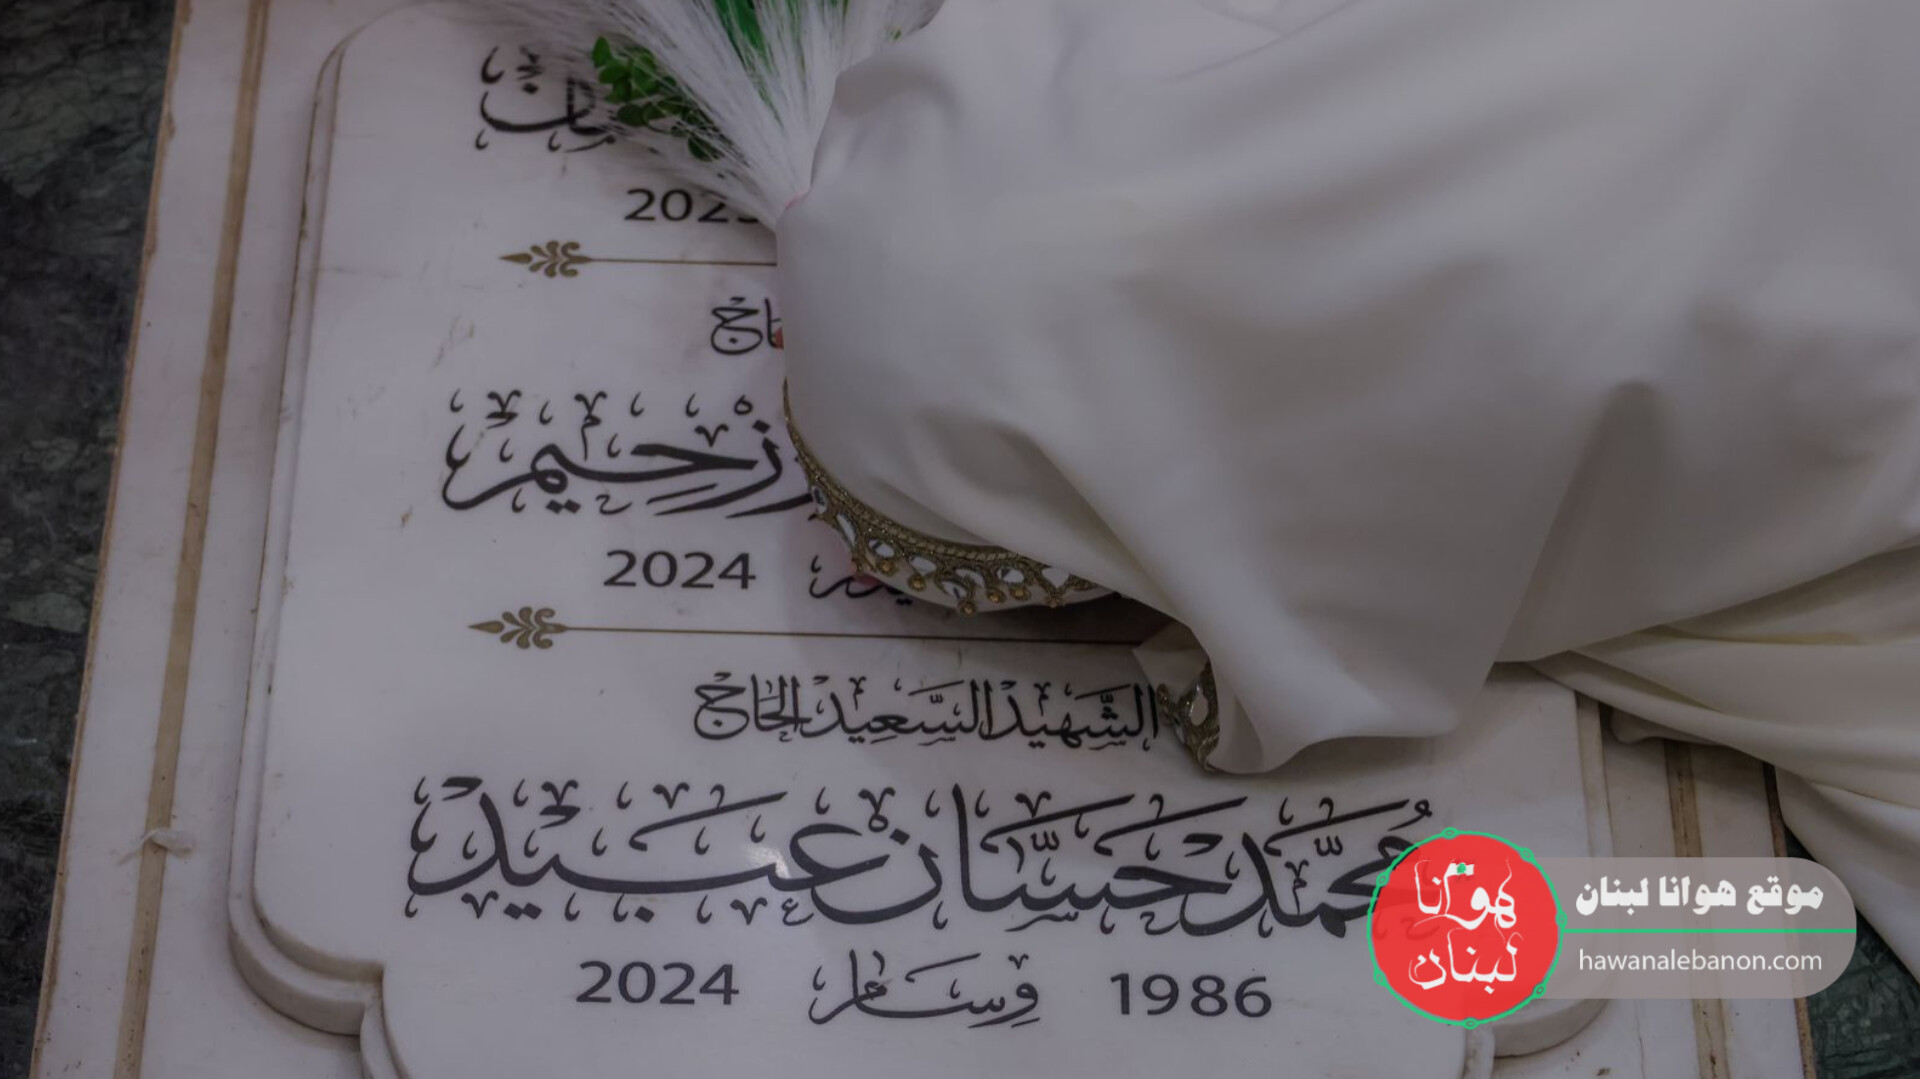 2023
الحاج
رحيم
2024
الشهيد السعيد الحاج
محمد حسان عبيد
1986 وسام 2024
هوانا لبنان
موقع هوانا لبنان
hawanalebanon.com